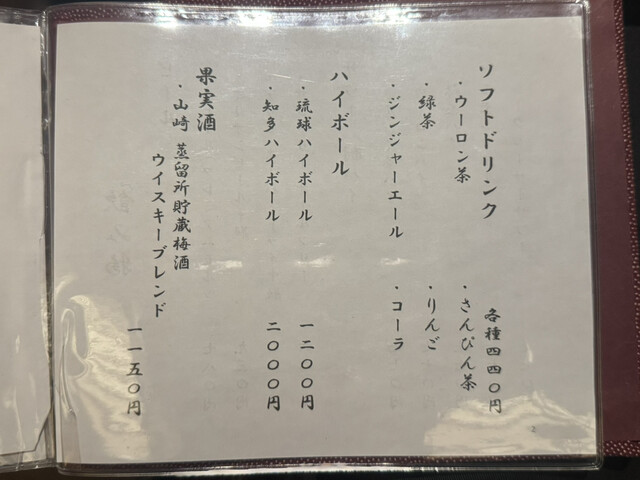 ソフトドリンク
各種四四〇円
・ウーロン茶
・さんぴん茶
・緑茶
・りんご
・ジンジャーエール
・コーラ
ハイボール
・琉球ハイボール
一二〇〇円
・知多ハイボール
二〇〇〇円
果実酒
・山崎 蒸留所貯蔵梅酒
ウイスキーブレンド
一一五〇円
2